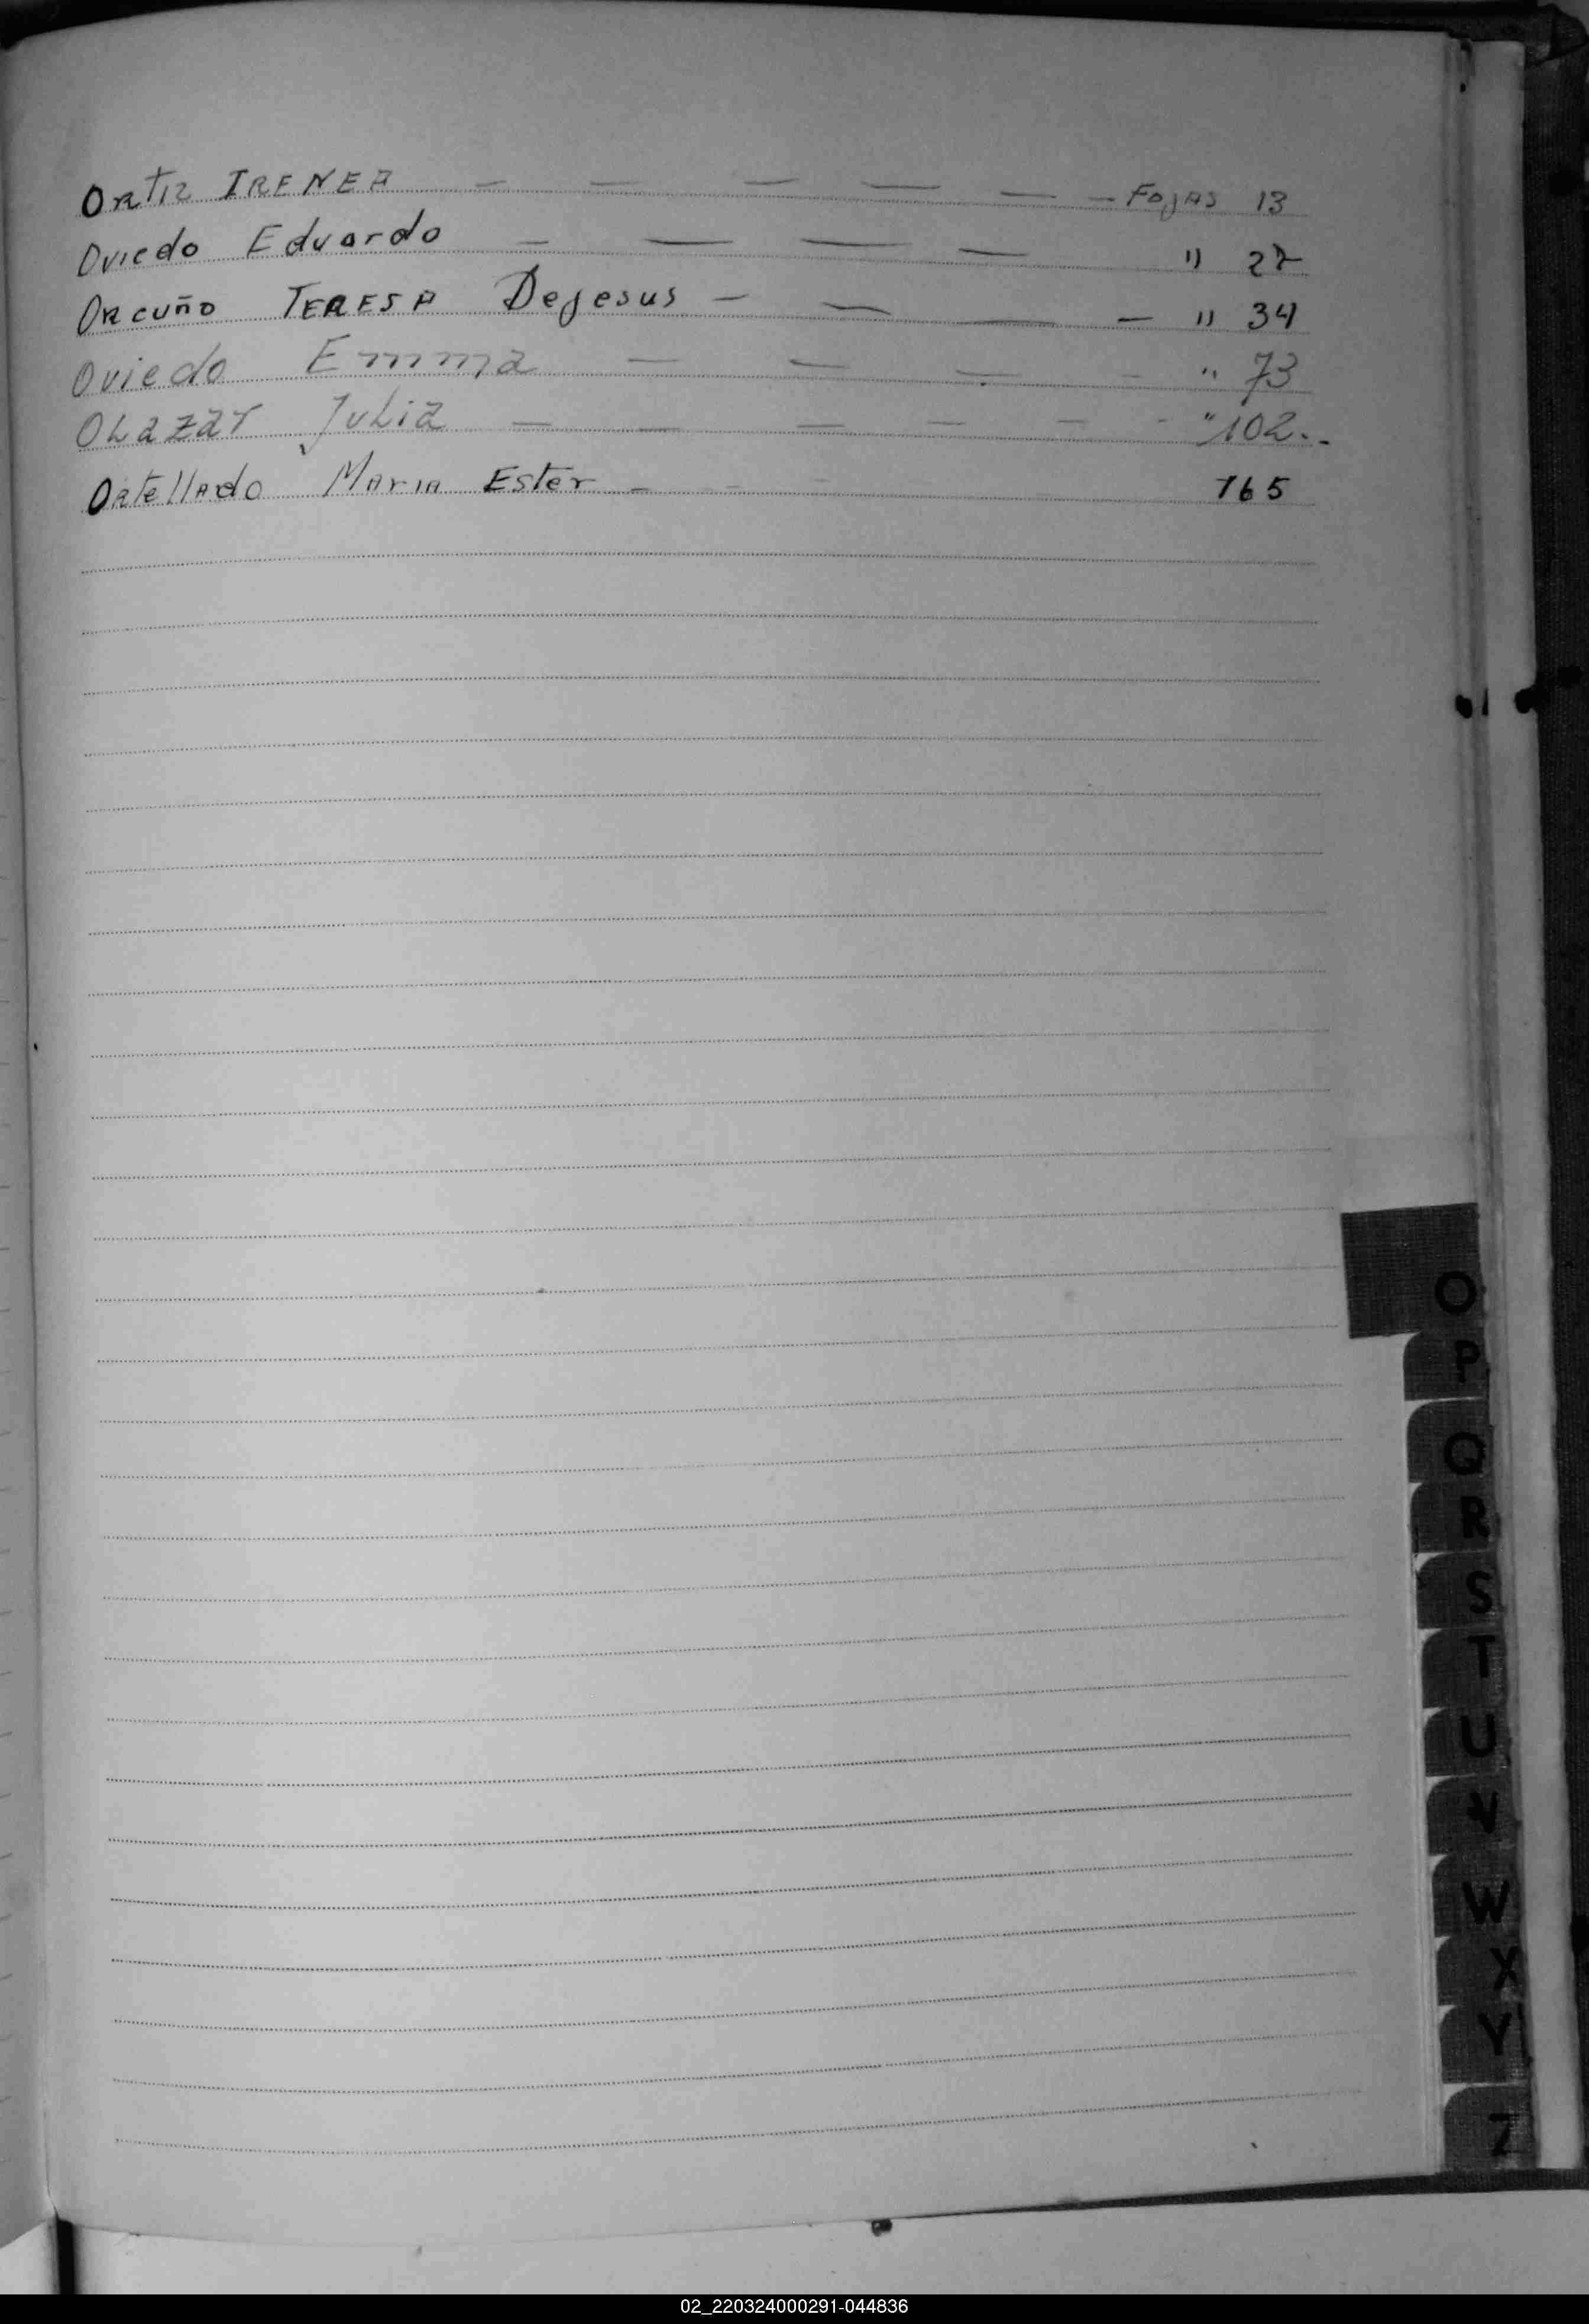 Ortiz IRENEA - - - - - - Fojas 13
Oviedo Eduardo - - - - " 27
Orcuño TERESA Dejesus - - - - " 34
Oviedo Emma - - - - " 73
OLazar Julia - - - - - - " 102.-
Ortellado Maria Ester - - - 165
O
P
Q
R
S
T
U
V
W
X
Y
Z
02_220324000291-044836